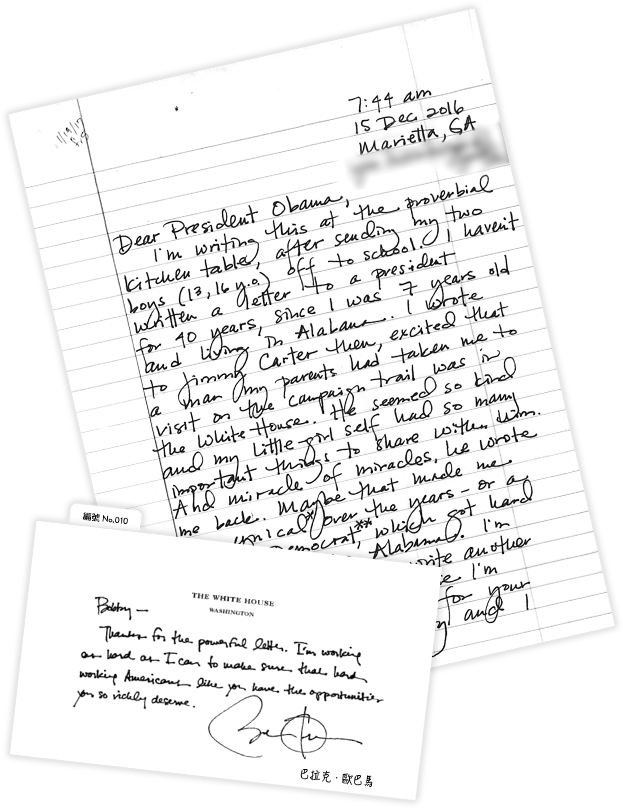 1/19/17
7:44 am
15 Dec. 2016
Marietta, GA
Dear President Obama,
I'm writing this at the proverbial
kitchen table, after sending my two
boys (13, 16 y.o.) off to school. I haven't
written a letter to a president
for 40 years, since I was 7 years old
and living in Alabama. I wrote
to Jimmy Carter then, excited that
a man my parents had taken me to
visit on the campaign trail was in
the White House. He seemed so kind
and my little girl self had so many
important things to share with him.
And miracle of miracles, he wrote
me back. Maybe that made me
ynical* over the years – or a
emocrat**, which got hard
Alabama). I'm
write another
I'm
for your
and I
編號 No.010
THE WHITE HOUSE
WASHINGTON
Bobby —
Thanks for the powerful letter. I'm working
as hard as I can to make sure that hard
working Americans like you have the opportunities
you so richly deserve.
巴拉克·歐巴馬